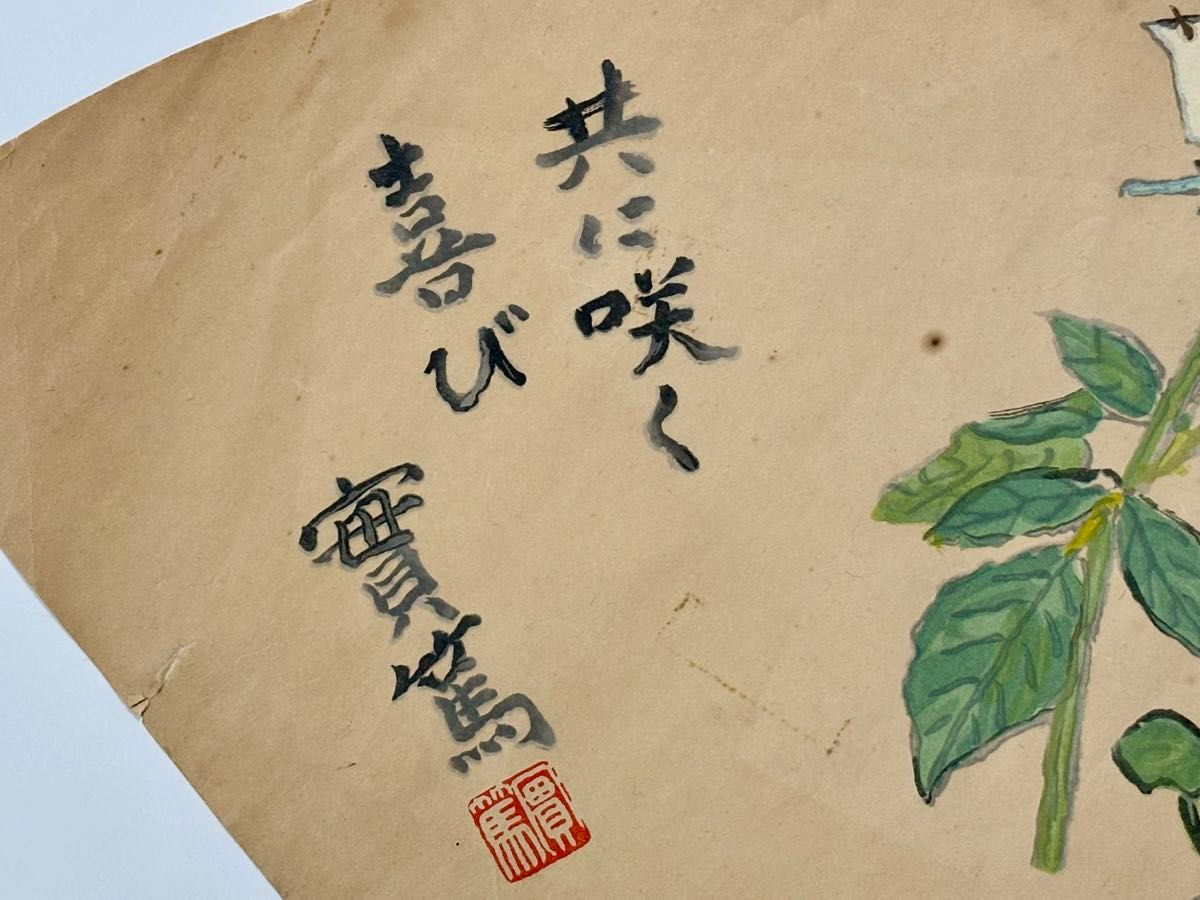 共に咲く
喜び
實篤
實篤